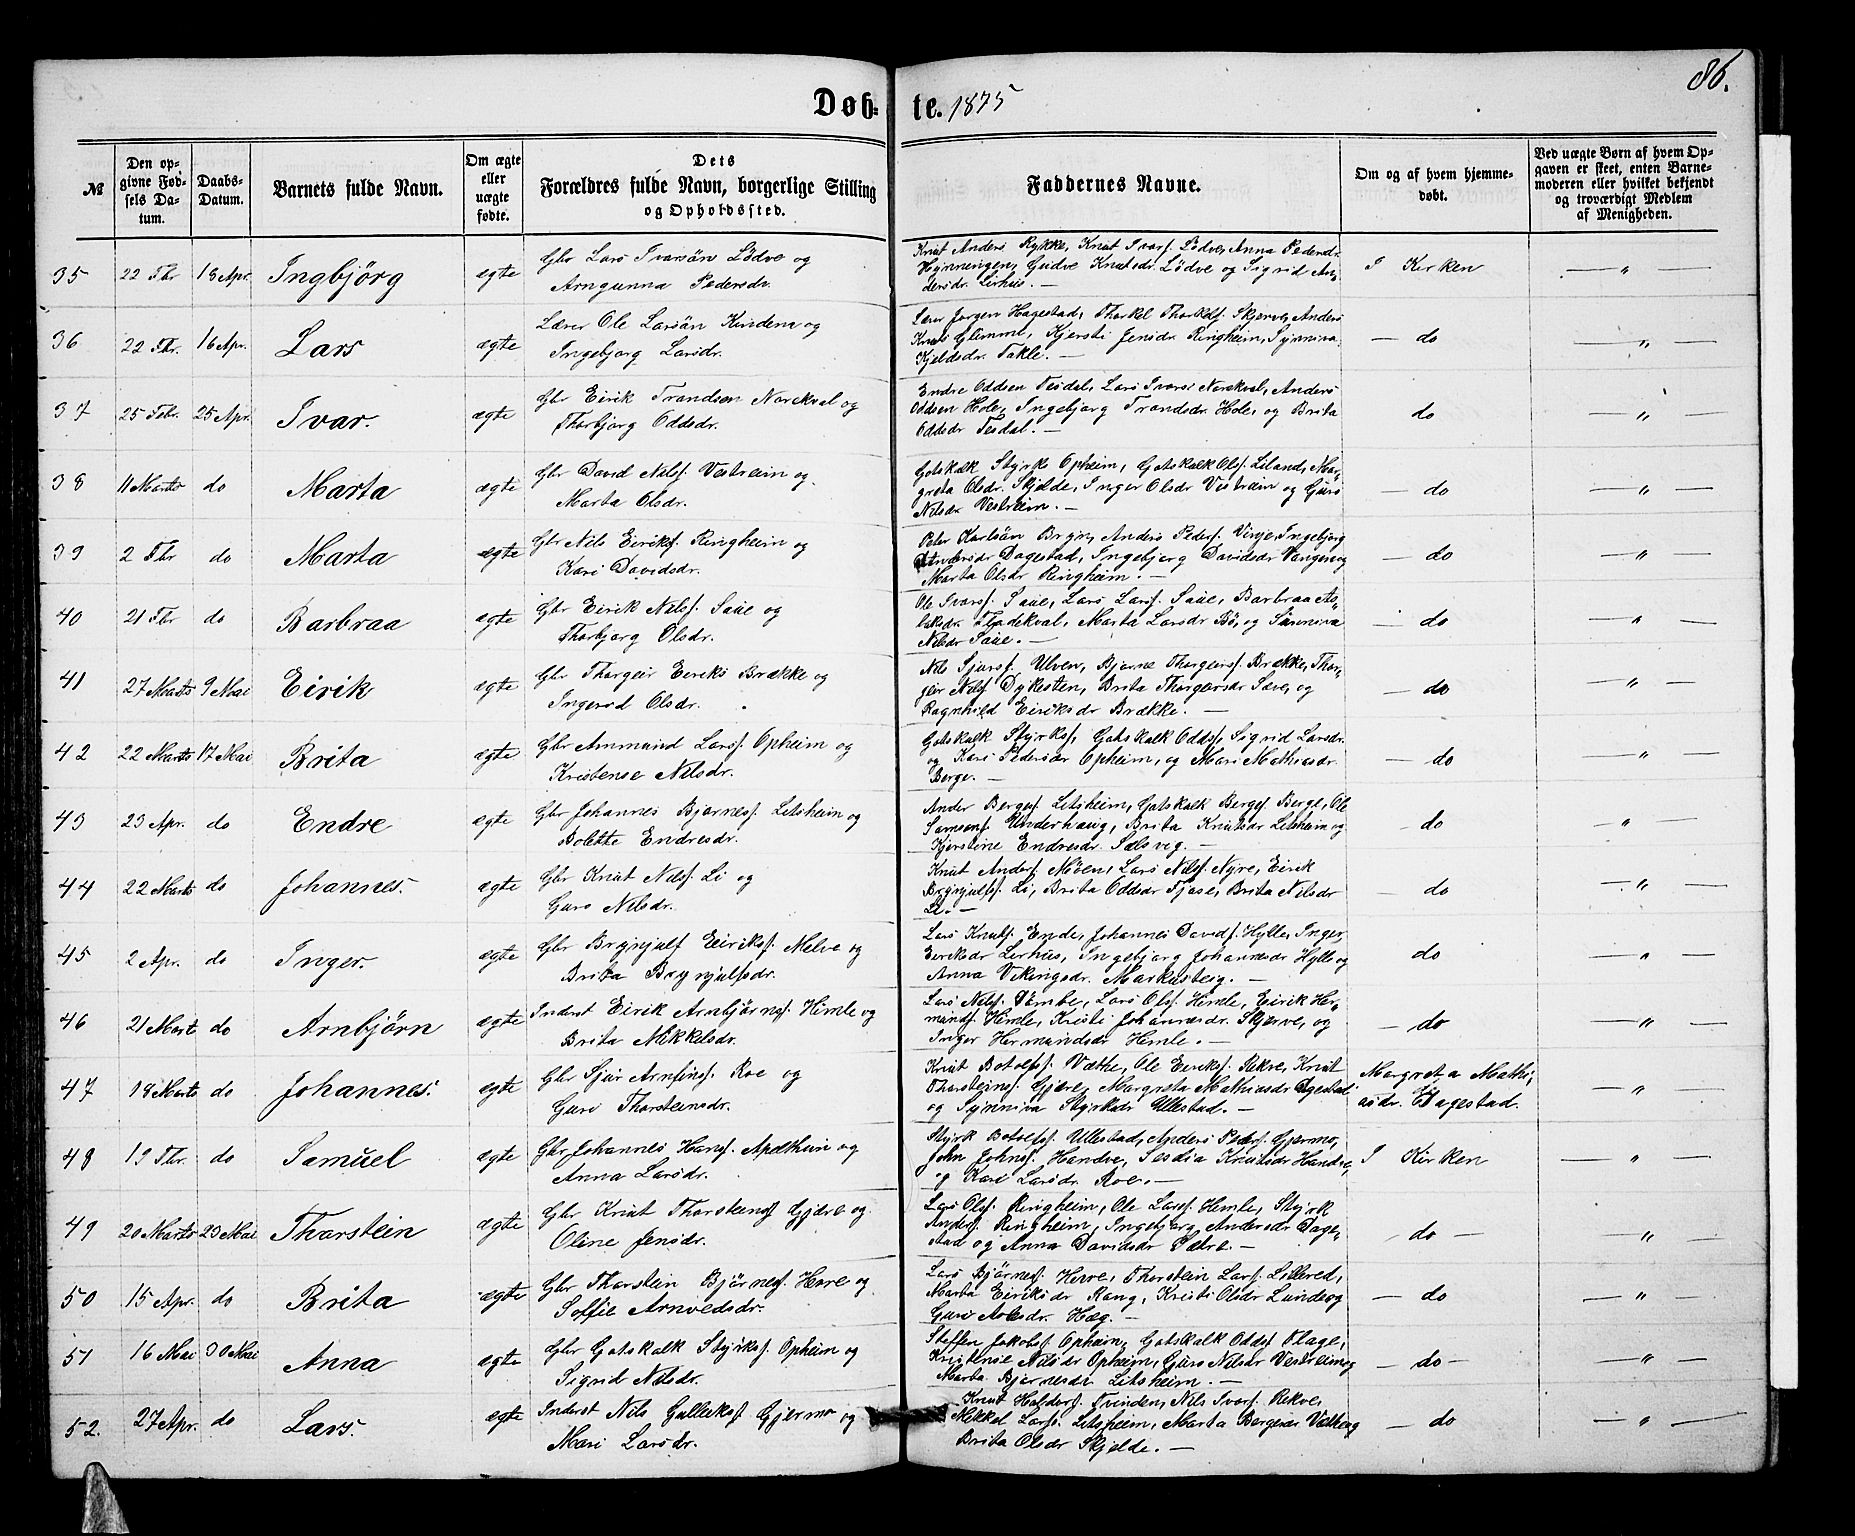 86.
Döbte. 1875
№ | Den opgivne Fødsels Datum. | Daabs-Datum. | Barnets fulde Navn. | Om ægte eller uægte fødte. | Dets Forældres fulde Navn, borgerlige Stilling og Opholdssted. | Faddernes Navne. | Om og af hvem hjemmedøbt. | Ved uægte Børn af hvem Opgaven er skeet, enten Barnemoderen eller hvilket bekjendt og troværdigt Medlem af Menigheden.
35 | 22 Fbr | 18 Apr. | Ingbjörg | ægte | Gbr Lars Ivarsön Lödve og Arngunna Pedersdr. | Knut Anders Rykke, Knut Ivars. Lödve, Anna Pedersdr. Hönningen, Gudve Knutsdr. Lödve og Sigrid Andersdr. Lirhus. — | I Kirken | — " —
36 | 22 Fbr. | 16 Apr. | Lars | ægte | Lærer Ole Larsön Kindem og Ingebjorg Larsdr. | Lærer Jorgen Hagestad, Thorkel Thorkels. Skjerve, Anders Knuts Glimme, Kjersti Jensdr. Ringheim, Synniva Kjeldsdr. Takle. — | — do | — " —
37 | 25 Febr. | 25 Apr. | Ivar. | ægte | Gbr Eirik Trondsen Norekval og Thorbjorg Oddsdr. | Endre Oddsen Tesdal, Lars Ivars. Norekval, Anders Oddsen Hole, Ingebjorg Trondsdr. Hole, og Brita Oddsdr Tesdal. — | do | — " —
38 | 11 Marts | do | Marta | ægte | Gbr David Nilss. Vestreim og Marta Olsdr. | Gotskalk Styrks Opheim, Gotskalk Olss. Liland, Margreta Olsdr. Skjelde, Inger Olsdr Vestreim og Guro Nilsdr. Vestreim. — | — do | — " —
39 | 2 Fbr | do | Marta | ægte | Gbr Nils Eiriks. Ringheim og Kari Davidsdr. | Peter Karlsön Bryn, Anders Peders. Vinje, Ingebjorg Andersdr Dagestad, Ingebjorg Davidsdr Vangen og Marta Olsdr Ringheim. — | — do | — " —
40 | 21 Fbr | do | Barbraa | ægte | Gbr Eirik Nilss. Saue og Thorbjorg Olsdr. | Ole Ivars. Saue, Lars Larss. Saue, Barbraa Aslaksdr. Flatekval, Marta Larsdr Bö, og Synniva Nilsdr Saue. — | — do | — " —
41 | 27 Marts | 9 Mai | Eirik | ægte | Gbr Thorgeir Eiriks Brække og Ingerid Olsdr. | Nils Sjurs. Ulven, Bjorne Thorgeirs. Brække, Thorgeir Nilss Dykesten, Brita Thorgeirsdr Saue, og Ragnhild Eiriksdr Brække. — | — do | — " —
42 | 22 Marts | 17 Mai | Brita | ægte | Gbr Ammund Larss. Opheim og Kristense Nilsdr. | Gotskalk Styrks, Gotskalk Oddss, Sigrid Larsdr. og Kari Pedersdr Opheim, og Mari Mathiasdr. Berge. — | — do | — " —
43 | 23 Apr. | do | Endre | ægte | Gbr Johannes Bjornes. Litsheim og Bolette Endresdr. | Ander Berges. Litsheim, Gotskalk Berges. Berge, Ole Samsons. Underhaug, Brita Knutsdr Litsheim og Kjerstine Endresdr. Sælsveg. — | — do | — " —
44 | 22 Marts | do | Johannes. | ægte | Gbr Knut Nilss. Li og Guro Nilsdr. | Knut Anders. Möen, Lars Nilss. Nyre, Eirik Brynjulfs. Li, Brita Oddsdr Fjose, Brita Nilsdr Li. — | — do | — " —
45 | 2 Apr. | do | Inger. | ægte | Gbr Brynjulf Eiriks. Melve og Brita Brynjulfsdr. | Lars Knuts. Ende, Johannes Davids. Hylle, Inger Eiriksdr Lirhus, Ingebjorg Johannesdr Hylle og Anna Vikingsdr. Markusteig. — | do | — " —
46 | 21 Mart | do | Arnbjörn | ægte | Inderst Eirik Arnbjörns. Himle og Brita Mikkelsdr. | Lars Nilss. Dömbe, Lars Olss. Himle, Eirik Hermunds. Himle, Kristi Johannesdr. Skjerve, og Inger Hermundsdr Himle. — | — do | — " —
47 | 18 Marts | do | Johannes. | ægte | Gbr Sjur Arnfins. Roe og Guri Thorsteinsdr. | Knut Botolfs. Væthe, Ole Eiriks. Rekve, Knut Thorsteins. Gjære, Margreta Mathiasdr Dagestad og Synniva Styrksdr Ullestad. — | Margreta Mathiasdr. Dagestad. | — "
48 | 19 Fbr. | do | Samuel | ægte | Gbr Johannes Hans. Apelthun og Anna Larsdr. | Styrk Botolfs. Ullestad, Anders Peders. Gjermo, John Johns. Handve, Sesselia Knutsdr Handve, og Kari Larsdr. Roe. — | I Kirken | — " —
49 | 20 Marts | 23 Mai | Thorstein | ægte | Gbr Knut Thorsteins. Gjære og Oline Jensdr. | Lars Olss. Ringheim, Ole Larss. Himle, Styrk Anders. Ringheim, Ingebjorg Andersdr Dagestad og Anna Davidsdr Sætre. — | do — | " —
50 | 15 Apr. | do | Brita | ægte | Gbr Thorstein Björnes. Herre og Soffie Arnvedsdr. | Lars Björnes. Herre, Thorstein Larss. Lillered, Marta Eiriksdr Rong, Kristi Olsdr Lunde og Guri Aolesdr. Hæg. — | — do | — " —
51 | 16 Mai | 30 Mai | Anna | ægte | Gbr Gotskalk Styrks. Opheim og Sigrid Nilsdr. | Steffen Jakobs. Opheim, Gotskalk Oddss. Flage, Kristense Nilsdr Opheim, Guro Nilsdr Vestreim og Marta Bjornesdr Litsheim. — | — do — | — " —
52. | 27 Apr. | do | Lars. | ægte | Inderst Nils Gulleiks. Gjermo og Mari Larsdr. | Knut Haldors. Tvinden, Nils Ivars. Rekve, Mikkel Larss. Litsheim, Marta Bergesdr Vælberg Brita Olsdr Skjelde. — | — do | — " —